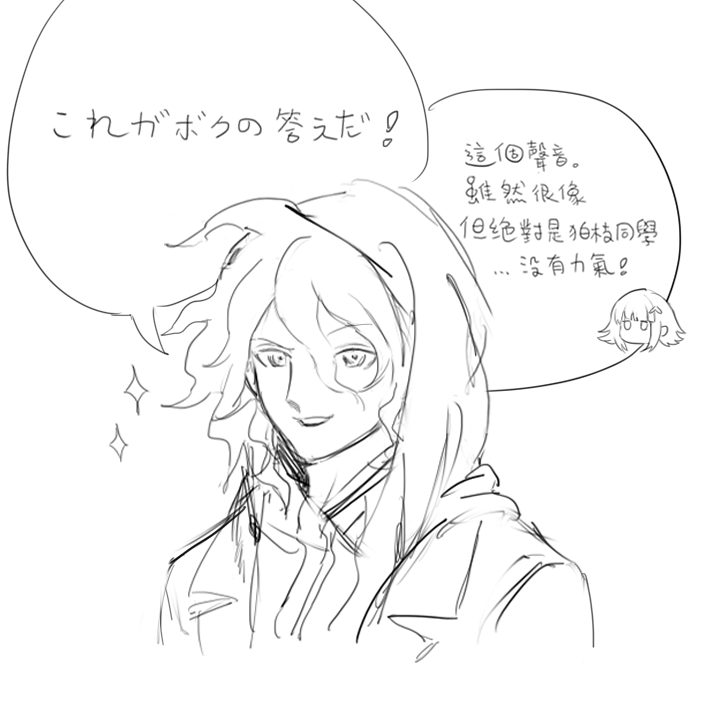 これがボクの答えだ！
這個聲音。
雖然很像
但絕對是狛枝同學
...沒有力氣！